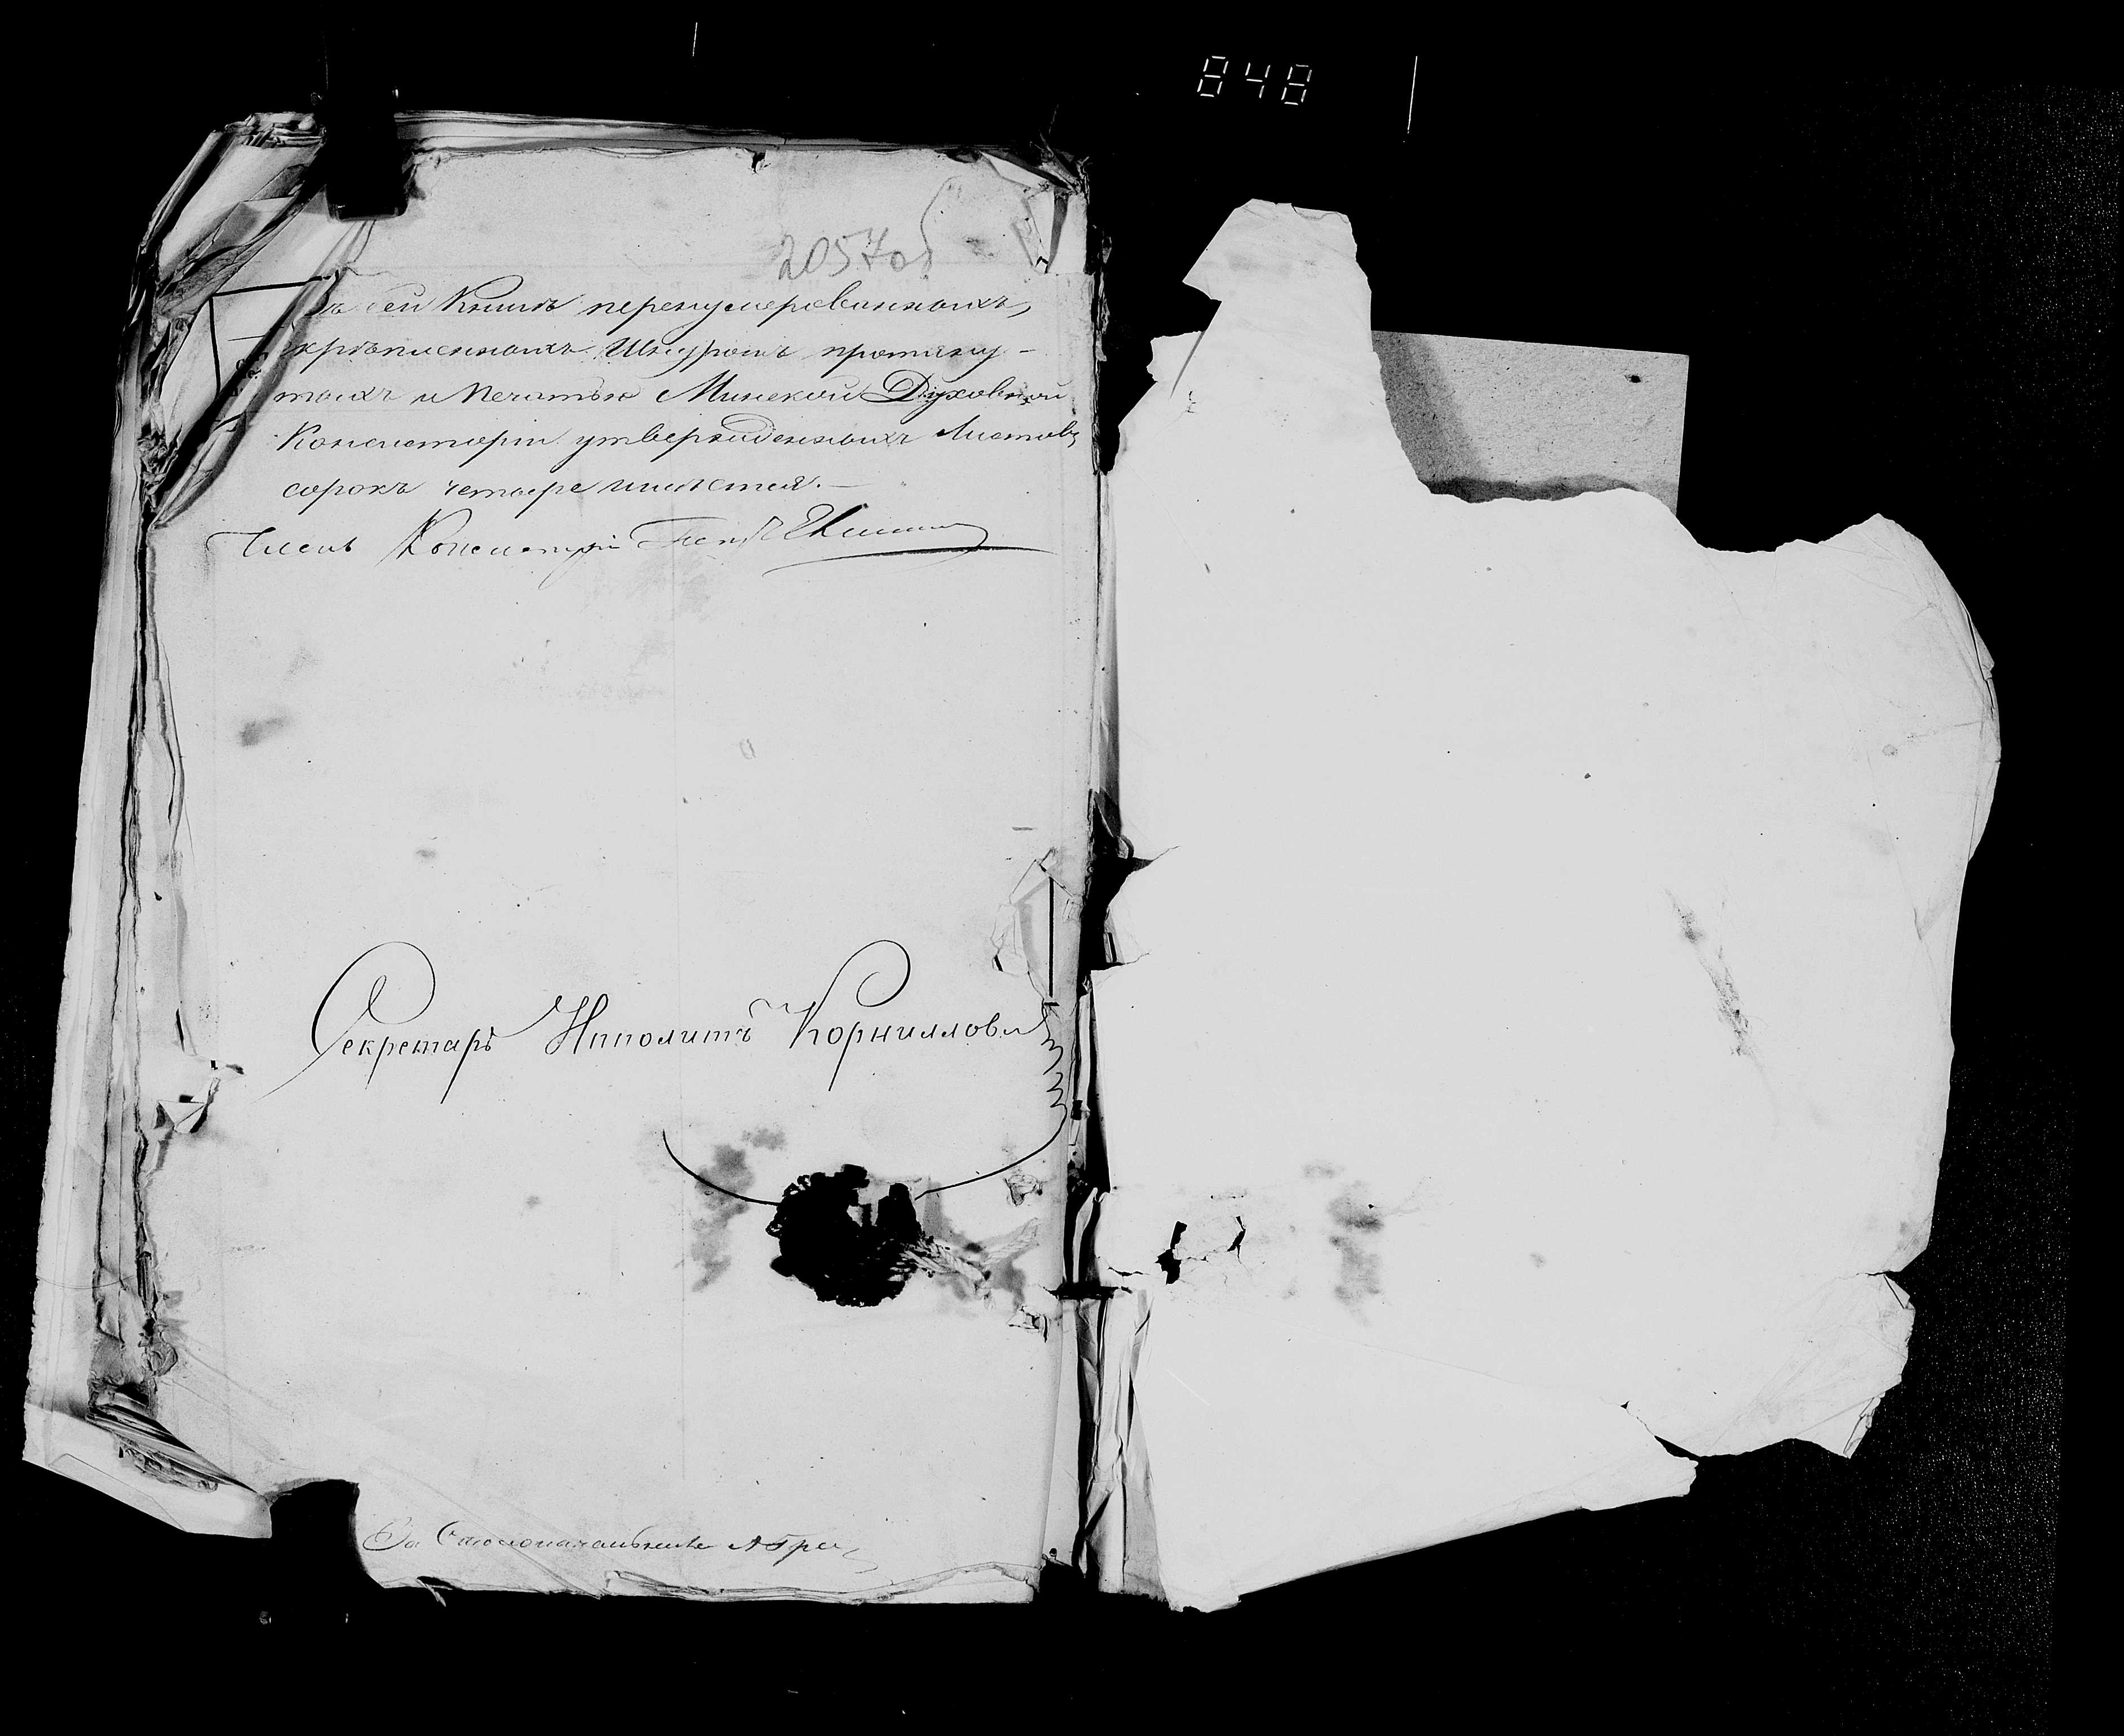 848
2057об
ъ сей Книгѣ перенумерованныхъ,
крѣпленныхъ Шнуромъ протяну-
тыхъ и Печатью Минской Духовной
Консисторіи утвержденныхъ Листовъ
сорокъ четыре
Членъ Консисторіи
Секретарь Ипполитъ Корниллович
За Столоначальника